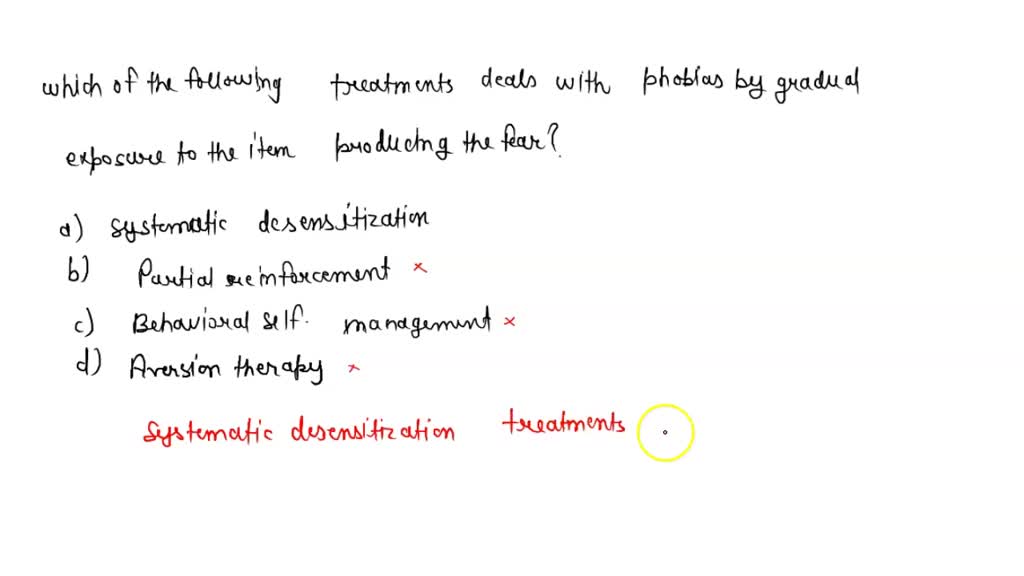 which of the following treatments deals with phobias by gradual
exposure to the item producing the fear?
a) systematic desensitization
b) Partial reinforcement ×
c) Behavioral self. management ×
d) Aversion therapy ×
systematic desensitization treatments